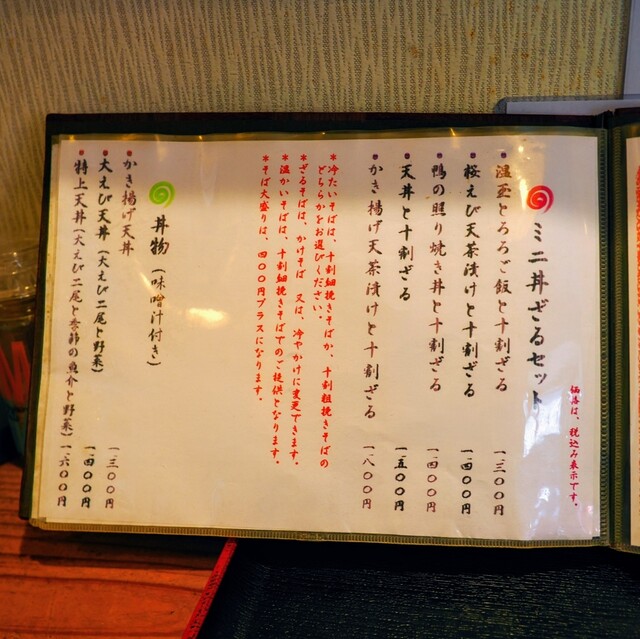 価格は、税込み表示です。
ミニ丼ざるセット
温玉とろろご飯と十割ざる 一、三〇〇円
桜えび天茶漬けと十割ざる 一、四〇〇円
鴨の照り焼き丼と十割ざる 一、四〇〇円
天丼と十割ざる 一、五〇〇円
かき揚げ天茶漬けと十割ざる 一、八〇〇円
*冷たいそばは、十割細挽きそばか、十割粗挽きそばの
どちらかをお選びください。
*ざるそばは、かけそば 又は、冷やかけに変更できます。
*温かいそばは、十割細挽きそばでのご提供となります。
*そば大盛りは、四〇〇円プラスになります。
丼物(味噌汁付き)
かき揚げ天丼 一、三〇〇円
大えび天丼(大えび二尾と野菜) 一、四〇〇円
特上天丼(大えび二尾と季節の魚介と野菜) 一、六〇〇円